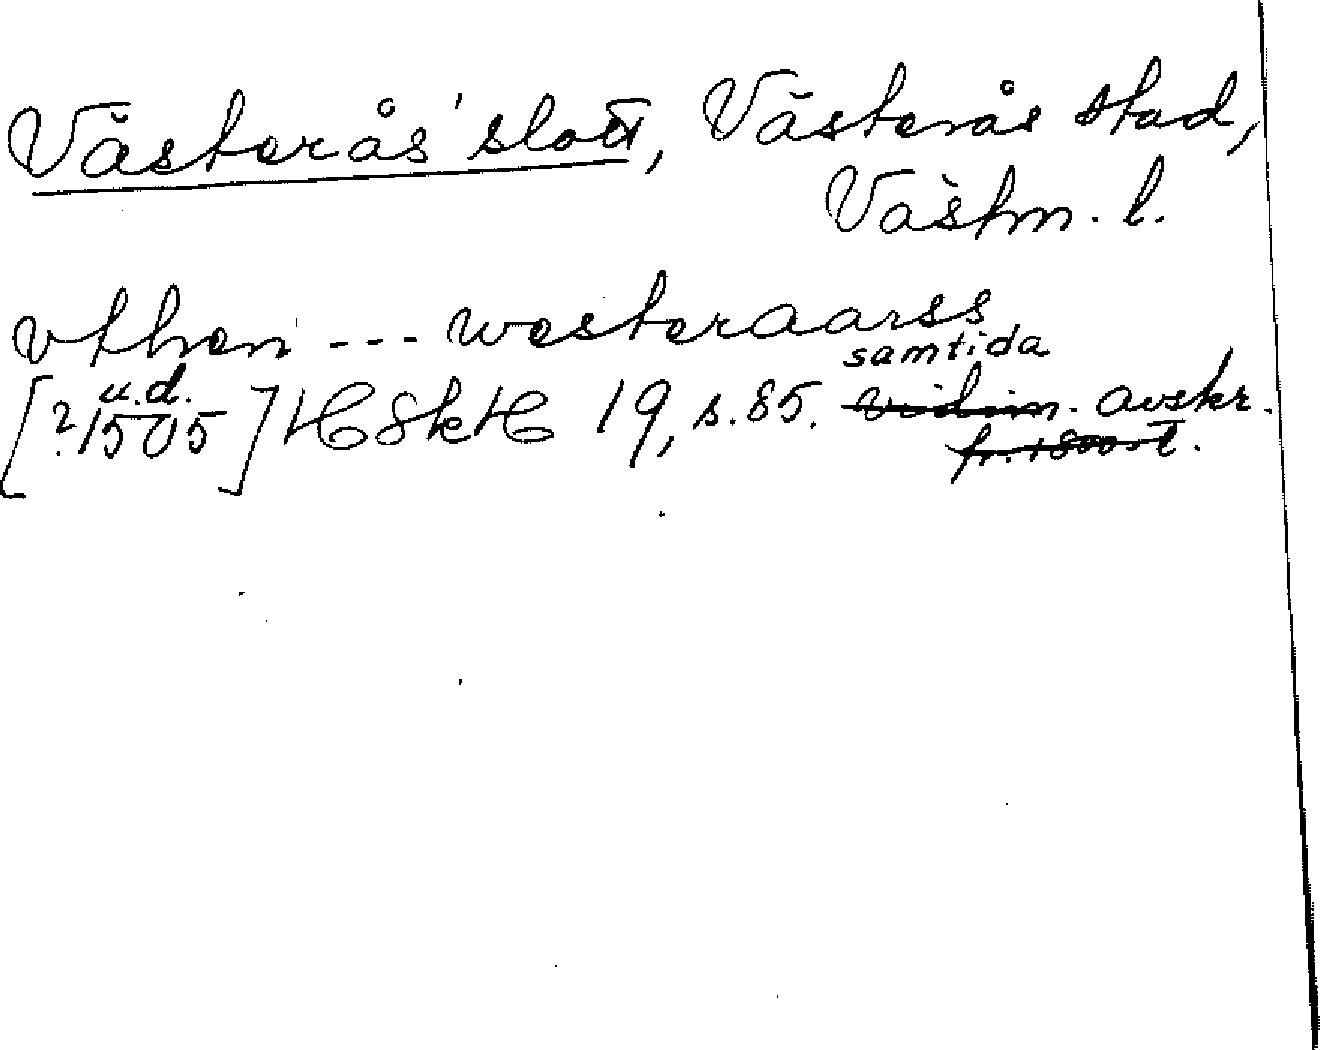 Västerås slott, Västerås stad,
Västm. l.
vthen --- westeraarss
samtida
u.d.
[?1505] HSkH 19, s. 85. vidim. avskr.
fr. 1800-t.